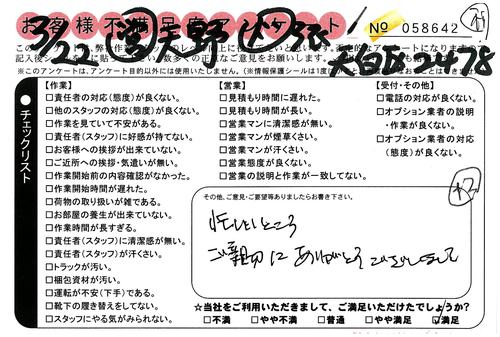 お客様不満足度アンケート
No 058642
3/22
※このアンケートは、アンケート目的以外には使用いたしません。
チェックリスト
【作業】
□責任者の対応(態度)が良くない。
□他のスタッフの対応(態度)が良くない。
□作業を見ていて不安がある。
□責任者(スタッフ)に好感が持てない。
□お客様への挨拶が出来ていない。
□ご近所への挨拶・気遣いが無い。
□作業開始前の内容確認がなかった。
□作業開始時間が遅れた。
□荷物の取り扱いが雑である。
□お部屋の養生が出来ていない。
□作業時間が長すぎる。
□責任者(スタッフ)に清潔感が無い。
□責任者(スタッフ)が汗くさい。
□トラックが汚い。
□梱包資材が汚い。
□運転が不安(下手)である。
□靴下の履き替えをしてない。
□スタッフにやる気がみられない。
【営業】
□見積もり時間に遅れた。
□見積もり時間が長い。
□営業マンに清潔感が無い。
□営業マンが煙草くさい。
□営業マンが汗くさい。
□営業態度が良くない。
□営業の説明と作業が一致してない。
【受付・その他】
□電話の対応が良くない。
□オプション業者の説明
・作業が良くない。
□オプション業者の対応
(態度)が良くない。
その他、ご意見・ご要望等ありましたらお書き下さい。
忙しいところ
ご親切に ありがとうございました
☆当社をご利用いただきまして、ご満足いただけたでしょうか?
□不満 □やや不満 □普通 □やや満足 ☑満足